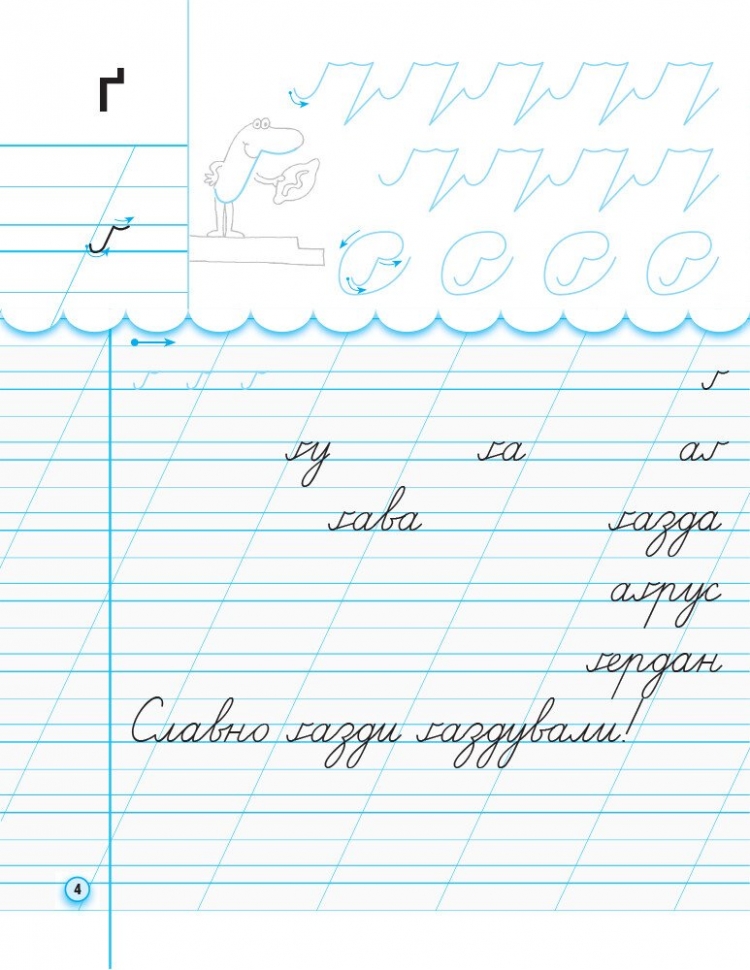 ґ
ґ
ґ ґ ґ ґ
ґ ґ ґ ґ
ґу ґа аґ
ґава ґазда
аґрус
ґердан
Славно ґазди ґаздували!
4